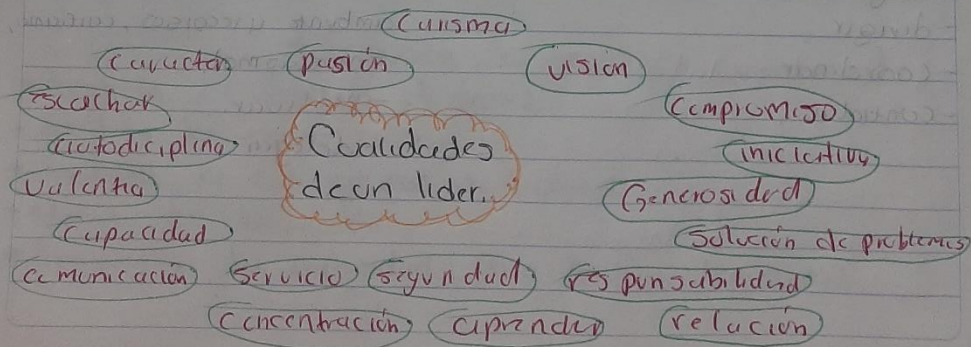 Carisma
Carácter pasión visión
escuchar Compromiso
autodiciplina iniciativa
Cualidades
de un lider.
valentia Generosidad
Capacidad Solución de problemas
comunicación servicio seguridad responsabilidad
concentración aprender relación